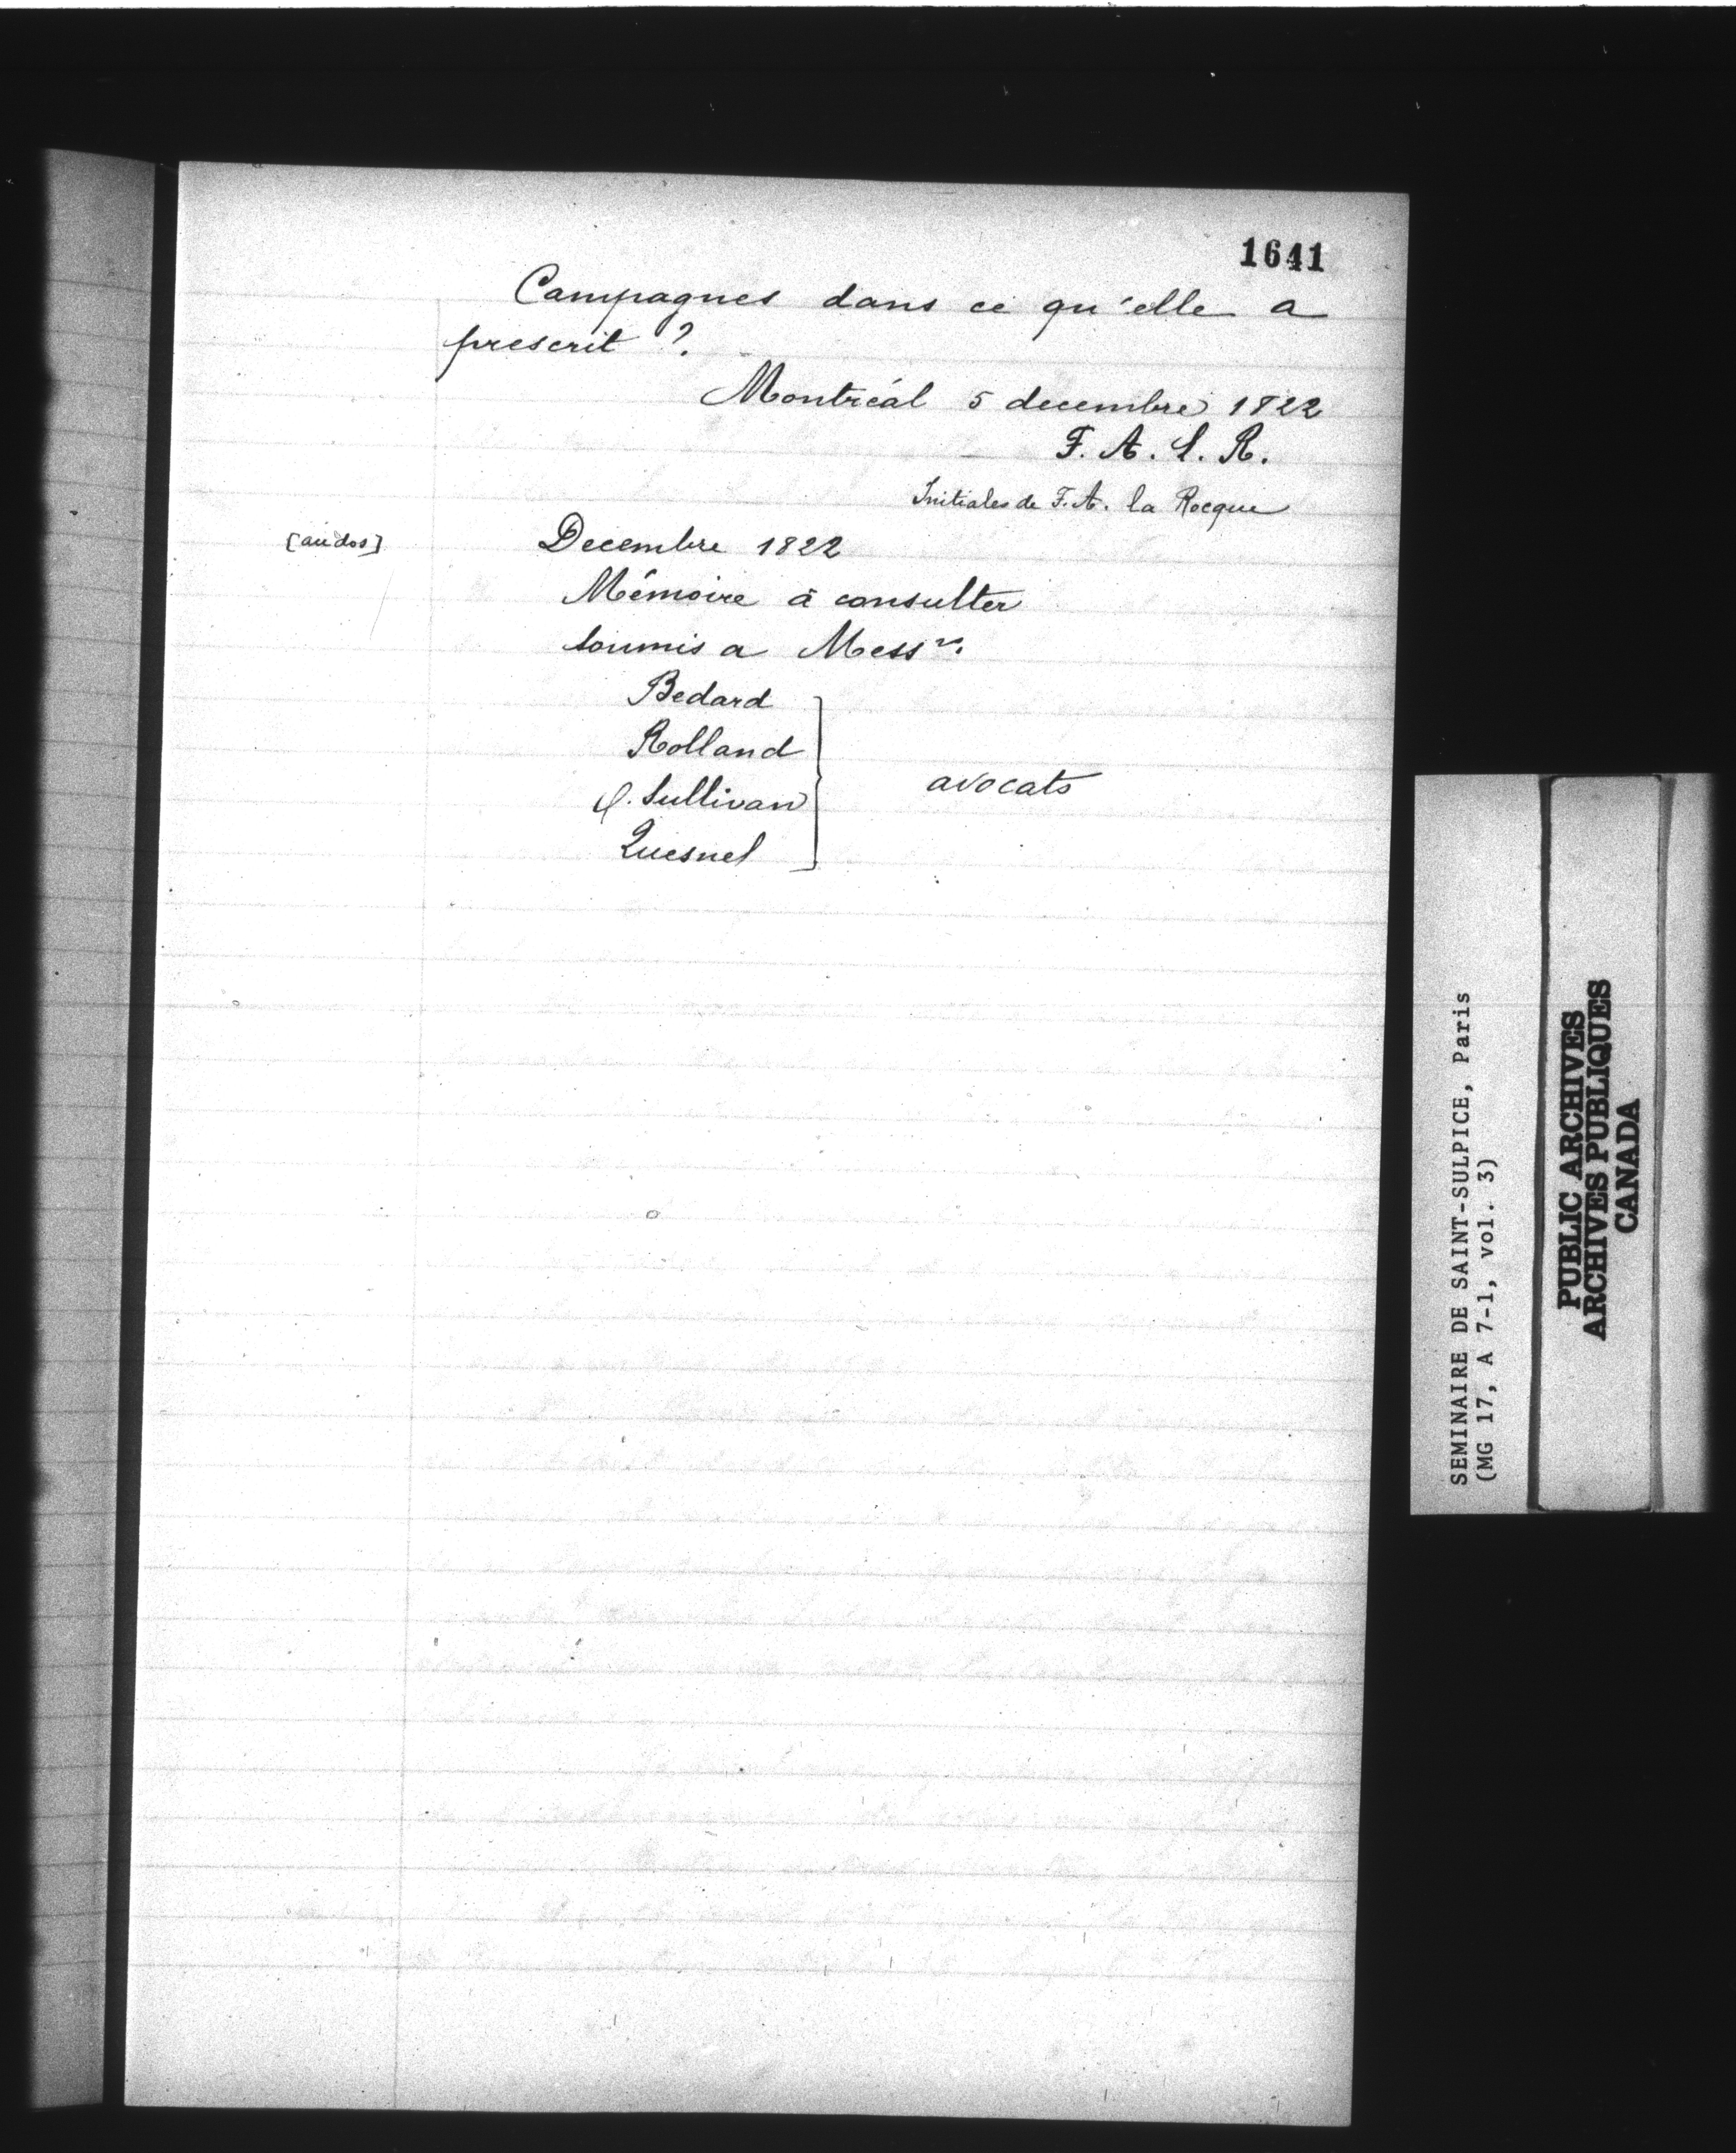 1641
Campagnes dans ce qu'elle a
prescrit ?
Montréal 5 decembre 1822
F. A. L. R.
Initiales de F. A. la Rocque
[au dos]
Decembre 1822
Mémoire à consulter
soumis a Messrs.
Bedard
Rolland
O. Sullivan
Quesnel
avocats
SEMINAIRE DE SAINT-SULPICE, Paris
(MG 17, A 7-1, vol. 3)
PUBLIC ARCHIVES
ARCHIVES PUBLIQUES
CANADA